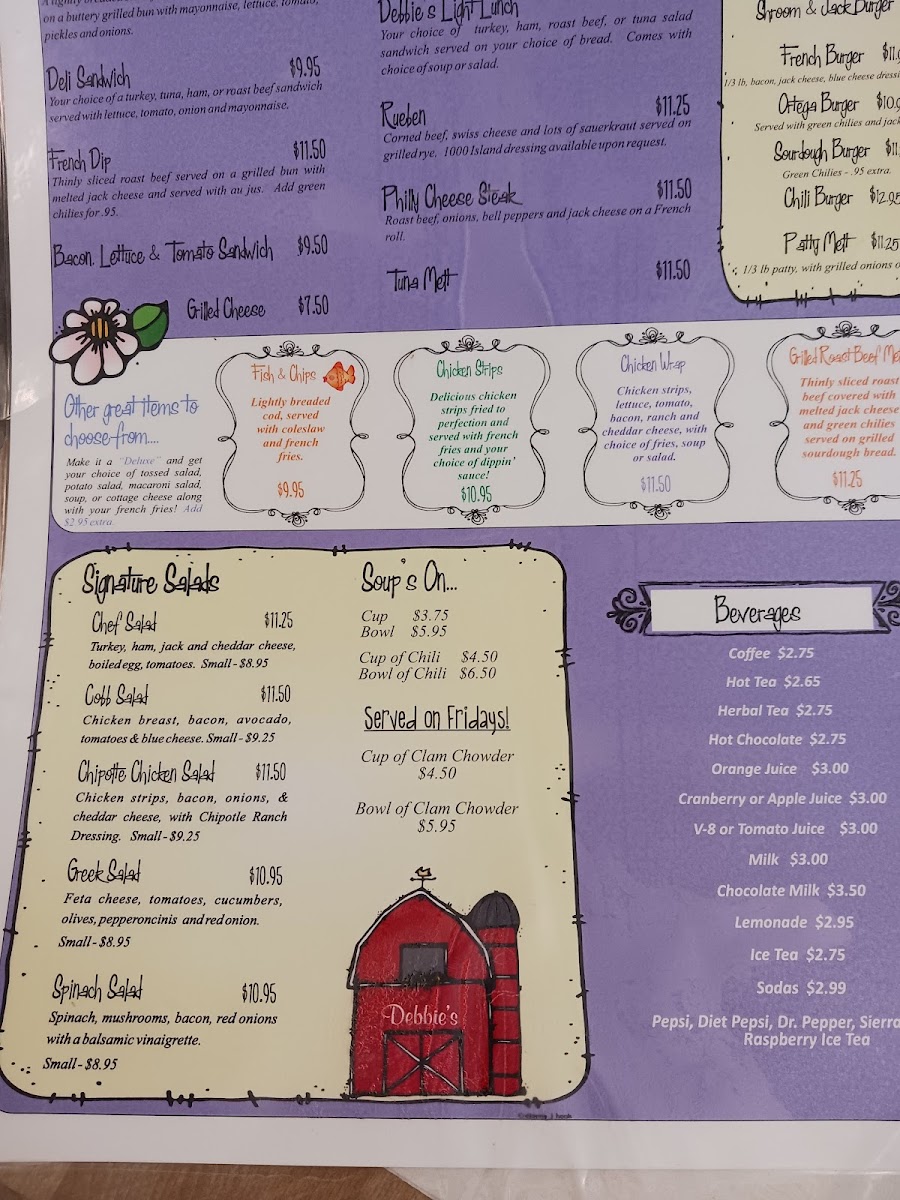 on a buttery grilled bun with mayonnaise, lettuce, tomato,
pickles and onions.
Deli Sandwich $9.95
Your choice of a turkey, tuna, ham, or roast beef sandwich
served with lettuce, tomato, onion and mayonnaise.
French Dip $11.50
Thinly sliced roast beef served on a grilled bun with
melted jack cheese and served with au jus. Add green
chilies for .95.
Bacon, Lettuce & Tomato Sandwich $9.50
Grilled Cheese $7.50
Debbie's Light Lunch
Your choice of turkey, ham, roast beef, or tuna salad
sandwich served on your choice of bread. Comes with
choice of soup or salad.
Rueben $11.25
Corned beef, swiss cheese and lots of sauerkraut served on
grilled rye. 1000 Island dressing available upon request.
Philly Cheese Steak $11.50
Roast beef, onions, bell peppers and jack cheese on a French
roll.
Tuna Melt $11.50
Shroom & Jack Burger
French Burger $11.
1/3 lb, bacon, jack cheese, blue cheese
Ortega Burger $10.
Served with green chilies and jack
Sourdough Burger $11.
Green Chilies - .95 extra.
Chili Burger $12.95
Patty Melt $11.25
1/3 lb patty, with grilled onions
Other great items to
choose from....
Make it a "Deluxe" and get
your choice of tossed salad,
potato salad, macaroni salad,
soup, or cottage cheese along
with your french fries! Add
$2.95 extra.
Fish & Chips
Lightly breaded
cod, served
with coleslaw
and french
fries.
$9.95
Chicken Strips
Delicious chicken
strips fried to
perfection and
served with french
fries and your
choice of dippin'
sauce!
$10.95
Chicken Wrap
Chicken strips,
lettuce, tomato,
bacon, ranch and
cheddar cheese, with
choice of fries, soup
or salad.
$11.50
Grilled Roast Beef
Thinly sliced roast
beef covered with
melted jack cheese
and green chilies
served on grilled
sourdough bread.
$11.25
Signature Salads
Chef Salad $11.25
Turkey, ham, jack and cheddar cheese,
boiled egg, tomatoes. Small - $8.95
Cobb Salad $11.50
Chicken breast, bacon, avocado,
tomatoes & blue cheese. Small - $9.25
Chipotle Chicken Salad $11.50
Chicken strips, bacon, onions, &
cheddar cheese, with Chipotle Ranch
Dressing. Small - $9.25
Greek Salad $10.95
Feta cheese, tomatoes, cucumbers,
olives, pepperoncinis and red onion.
Small - $8.95
Spinach Salad $10.95
Spinach, mushrooms, bacon, red onions
with a balsamic vinaigrette.
Small - $8.95
Soup's On...
Cup $3.75
Bowl $5.95
Cup of Chili $4.50
Bowl of Chili $6.50
Served on Fridays!
Cup of Clam Chowder
$4.50
Bowl of Clam Chowder
$5.95
Debbie's
Beverages
Coffee $2.75
Hot Tea $2.65
Herbal Tea $2.75
Hot Chocolate $2.75
Orange Juice $3.00
Cranberry or Apple Juice $3.00
V-8 or Tomato Juice $3.00
Milk $3.00
Chocolate Milk $3.50
Lemonade $2.95
Ice Tea $2.75
Sodas $2.99
Pepsi, Diet Pepsi, Dr. Pepper, Sierra
Raspberry Ice Tea